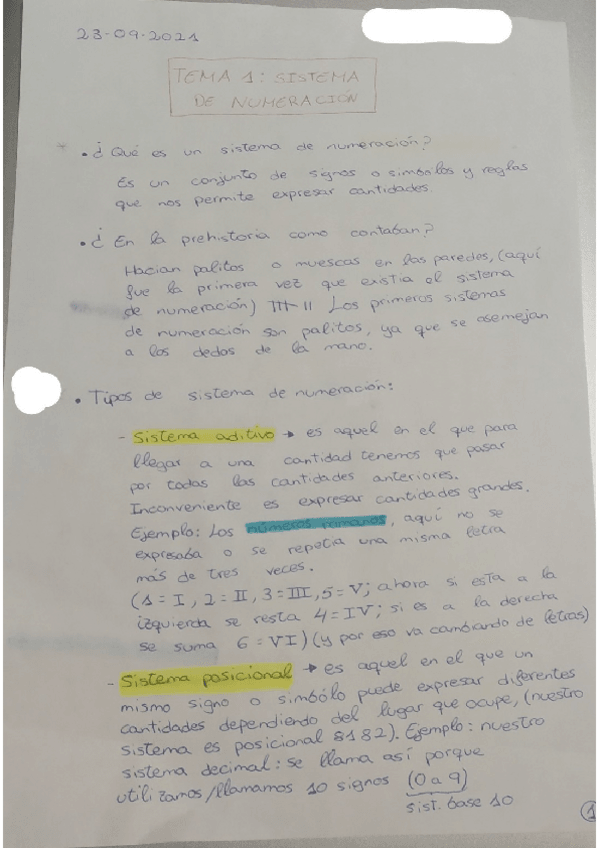 23-09-2021
TEMA 1: SISTEMA
DE NUMERACIÓN
• ¿ Qué es un sistema de numeración?
Es un conjunto de signos o simbólos y reglas
que nos permite expresar cantidades.
• ¿ En la prehistoria como contaban?
Hacian palitos o muescas en las paredes, (aquí
fue la primera vez que existia el sistema
de numeración) II Los primeros sistemas
de numeración son palitos, ya que se asemejan
a los dedos de la mano.
• Tipos de sistema de numeración:
- Sistema aditivo → es aquel en el que para
llegar a una cantidad tenemos que pasar
por todas las cantidades anteriores.
Inconveniente es expresar cantidades grandes.
Ejemplo: Los números romanos, aquí no se
expresaba o se repetia una misma letra
más de tres veces.
(1 = I, 2 = II, 3 = III, 5 = V; ahora si esta a la
izquierda se resta 4 = IV; si es a la derecha
se suma 6 = VI) (y por eso va cambiando de letras)
- Sistema posicional → es aquel en el que un
mismo signo o simbólo puede expresar diferentes
cantidades dependiendo del lugar que ocupe, (nuestro
sistema es posicional 8182). Ejemplo: nuestro
sistema decimal: se llama así porque
utilizamos/llamamos 10 signos (0 a 9)
sist. base 10
1